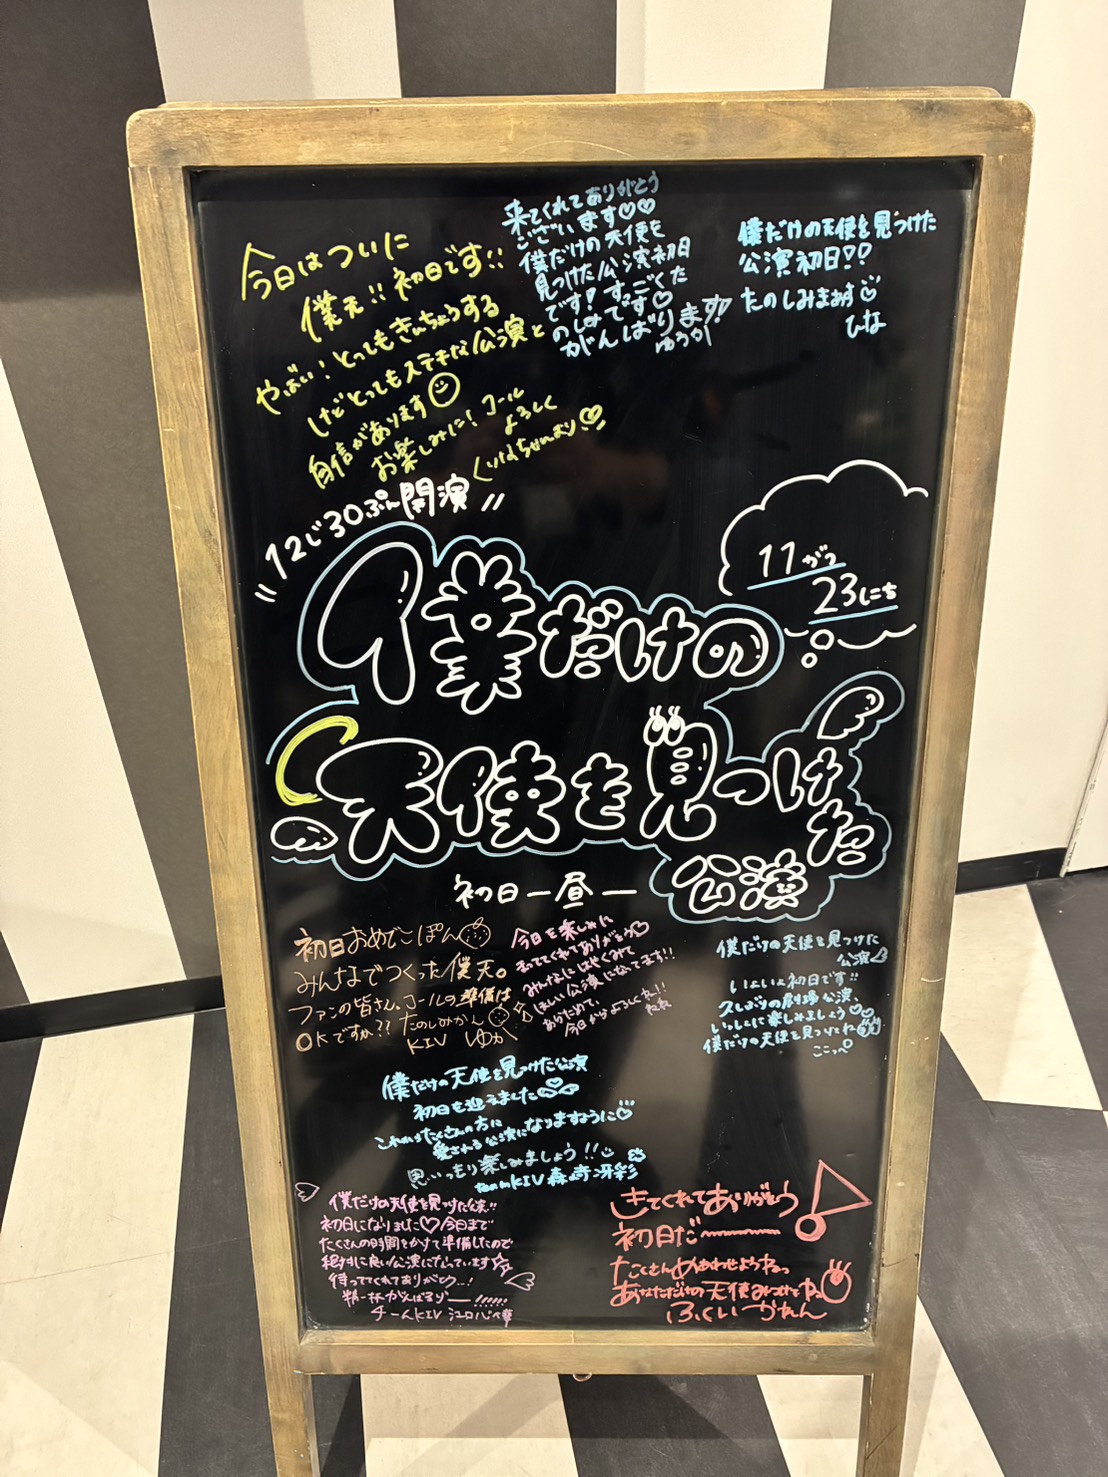 今日はついに
僕天!! 初日です!!
やばい!とってもきんちょうする
けどとってもステキな公演と
自信があります
お楽しみに!コール
よろしく
来てくれてありがとう
ございます♡♡
僕だけの天使を
見つけた公演初日
です!すっごくた
のしみです♡
がんばります!!
ゆうか
僕だけの天使を見つけた
公演初日!!
たのしみまぁす
ひな
"12じ30ぷん開演"
11がつ
23にち
僕だけの
天使を見つけた
公演
初日ー昼ー
初日おめでこぽん
みんなでつくった僕天。
ファンの皆さん、コールの準備は
OKですか?? たのしみかん
KIV ゆか
今日を楽しみに
まっててくれてありがとう♡
みんなにはやくみて
ほしい公演になってます!!
あらためて、
今日からよろしくね!!
僕だけの天使を見つけた
公演
いよいよ初日です!!
久しぶりの劇場公演、
いっしょに楽しみましょう♡
僕だけの天使を見つけてね
ここっぺ
僕だけの天使を見つけた公演
初日を迎えました
これからたくさんの方に
愛される公演になりますように♡
思いっきり楽しみましょう!!
teamKIV 森﨑冴彩
僕だけの天使を見つけた公演!!
初日になりました♡今日まで
たくさんの時間をかけて準備したので
絶対に良い公演になっています☆
待っててくれてありがとう...!
精一杯がんばるゾー!!!!!!
チームKIV 江口心々華
きてくれてありがとう
初日だー
たくさんめあわせようねっ
あなただけの天使みつけてねっ
ふくい かれん